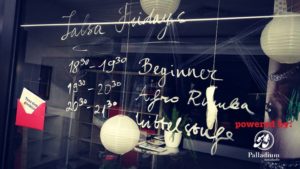 Salsa Fridays
18³⁰ - 19³⁰ Beginner
19³⁰ - 20³⁰ Afro Rumba
20³⁰ - 21³⁰ Mittelstufe
powered by:
Palladium